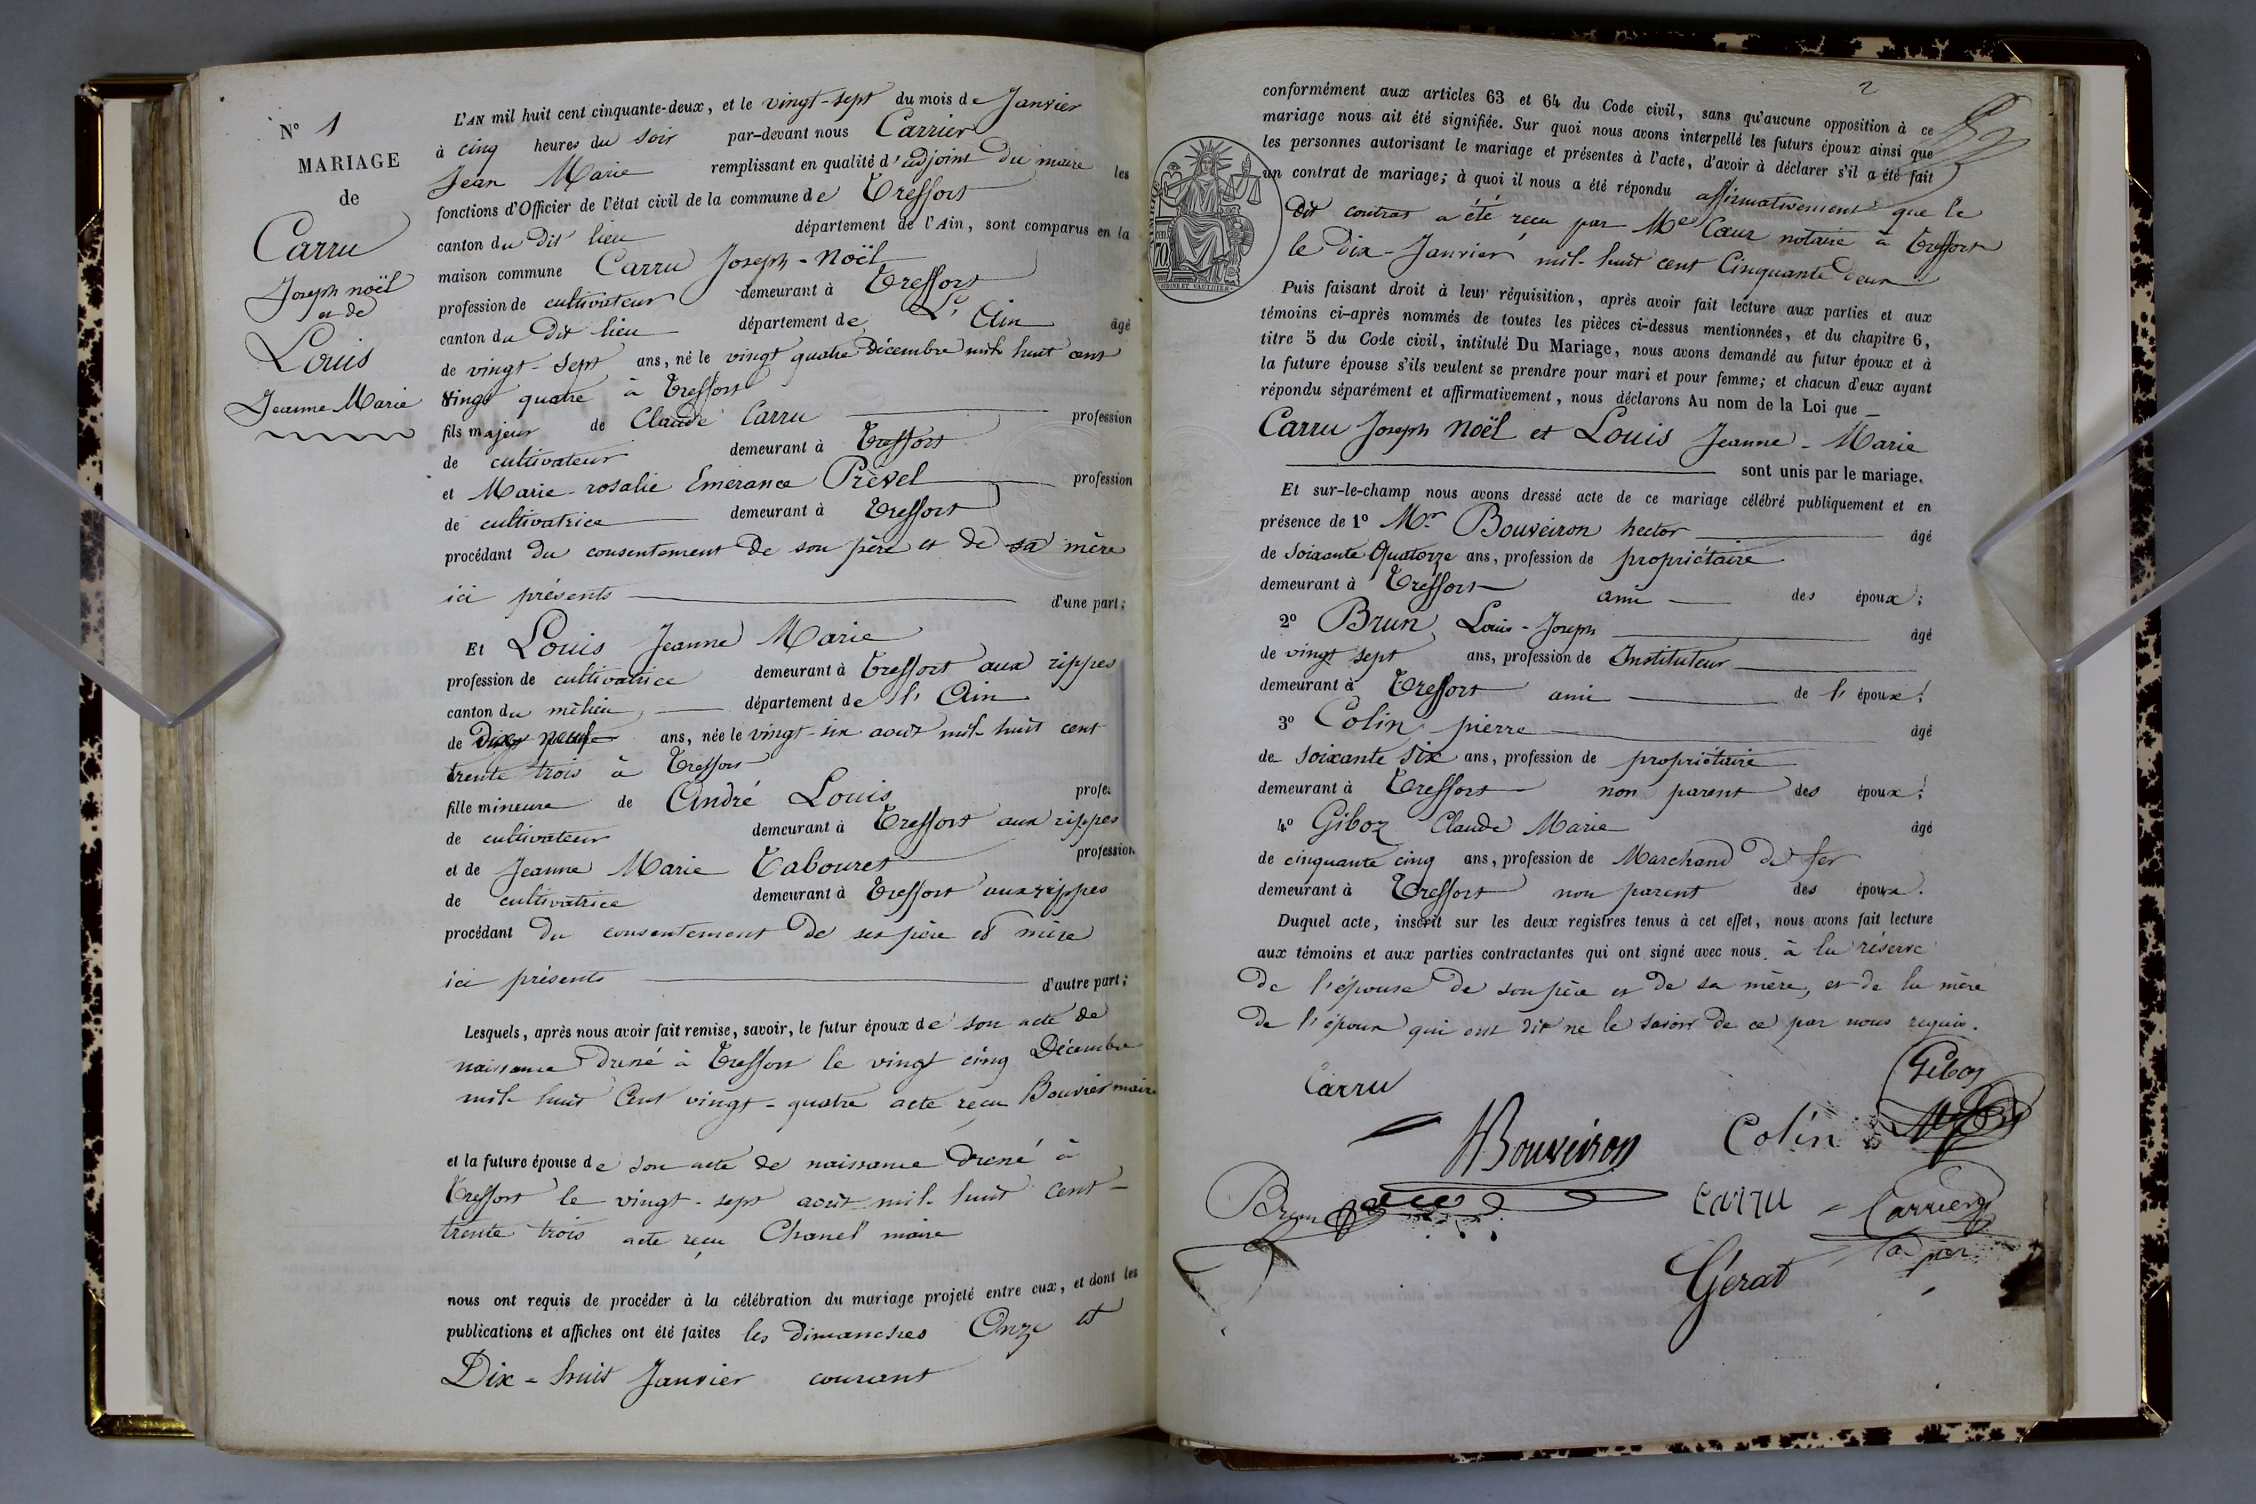 N° 1
MARIAGE
de
Carru
Joseph noël
et de
Louis
Jeanne Marie
L'AN mil huit cent cinquante-deux, et le vingt-sept du mois de Janvier
à cinq heures du soir par-devant nous Carrier
Jean Marie remplissant en qualité d'adjoint du maire les
fonctions d'Officier de l'état civil de la commune de Treffort
canton du dit lieu département de l'Ain, sont comparus en la
maison commune Carru Joseph-Noël
profession de cultivateur demeurant à Treffort
canton du dit lieu département de L'Ain âgé
de vingt-sept ans, né le vingt quatre Décembre mil huit cent
vingt quatre à Treffort
fils majeur de Claude Carru profession
de cultivateur demeurant à Treffort
et Marie-rosalie Emerance Prèvel profession
de cultivatrice demeurant à Treffort
procédant du consentement de son père et de sa mère
ici présents d'une part;
Et Louis Jeanne Marie
profession de cultivatrice demeurant à Treffort aux rippes
canton du mêlieu département de l'Ain
de dix neuf ans, née le vingt-six août mil huit cent
trente trois à Treffort
fille mineure de André Louis profes
de cultivateur demeurant à Treffort aux rippes
et de Jeanne Marie Tabouret profession
de cultivatrice demeurant à Treffort aux rippes
procédant du consentement de ses père et mère
ici présents d'autre part;
Lesquels, après nous avoir fait remise, savoir, le futur époux de son acte de
naissance dressé à Treffort le vingt cinq Décembre
mil huit Cent vingt-quatre acte reçu Bouvier maire
et la future épouse de son acte de naissance dressé à
Treffort le vingt-sept août mil huit cent-
trente trois acte reçu Chanel maire
nous ont requis de procéder à la célébration du mariage projeté entre eux, et dont les
publications et affiches ont été faites les dimanches Onze et
Dix-huit Janvier courant
2
conformément aux articles 63 et 64 du Code civil, sans qu'aucune opposition à ce
mariage nous ait été signifiée. Sur quoi nous avons interpellé les futurs époux ainsi que
les personnes autorisant le mariage et présentes à l'acte, d'avoir à déclarer s'il a été fait
un contrat de mariage; à quoi il nous a été répondu affirmativement que le
dit contrat a été reçu par Me Cœur notaire à Treffort
le dix-Janvier mil-huit cent Cinquante deux
Puis faisant droit à leur réquisition, après avoir fait lecture aux parties et aux
témoins ci-après nommés de toutes les pièces ci-dessus mentionnées, et du chapitre 6,
titre 5 du Code civil, intitulé Du Mariage, nous avons demandé au futur époux et à
la future épouse s'ils veulent se prendre pour mari et pour femme; et chacun d'eux ayant
répondu séparément et affirmativement, nous déclarons Au nom de la Loi que
Carru Joseph Noël et Louis Jeanne-Marie
sont unis par le mariage.
Et sur-le-champ nous avons dressé acte de ce mariage célébré publiquement et en
présence de 1° Mr Bouveiron hector âgé
de soixante Quatorze ans, profession de propriétaire
demeurant à Treffort ami des époux;
2° Brun Louis-Joseph âgé
de vingt sept ans, profession de Instituteur
demeurant à Treffort ami de l'époux;
3° Colin pierre âgé
de soixante six ans, profession de propriétaire
demeurant à Treffort non parent des époux;
4° Giboz Claude Marie âgé
de cinquante cinq ans, profession de Marchand de fer
demeurant à Treffort non parent des époux.
Duquel acte, inscrit sur les deux registres tenus à cet effet, nous avons fait lecture
aux témoins et aux parties contractantes qui ont signé avec nous. à la réserve
de l'épouse de son père et de sa mère, et de la mère
de l'époux qui ont dit ne le savoir de ce par nous requis.
Carru
Giboz
HBouveiron
Colin
Brun
Carru
Carrier
adjoint
Gérat